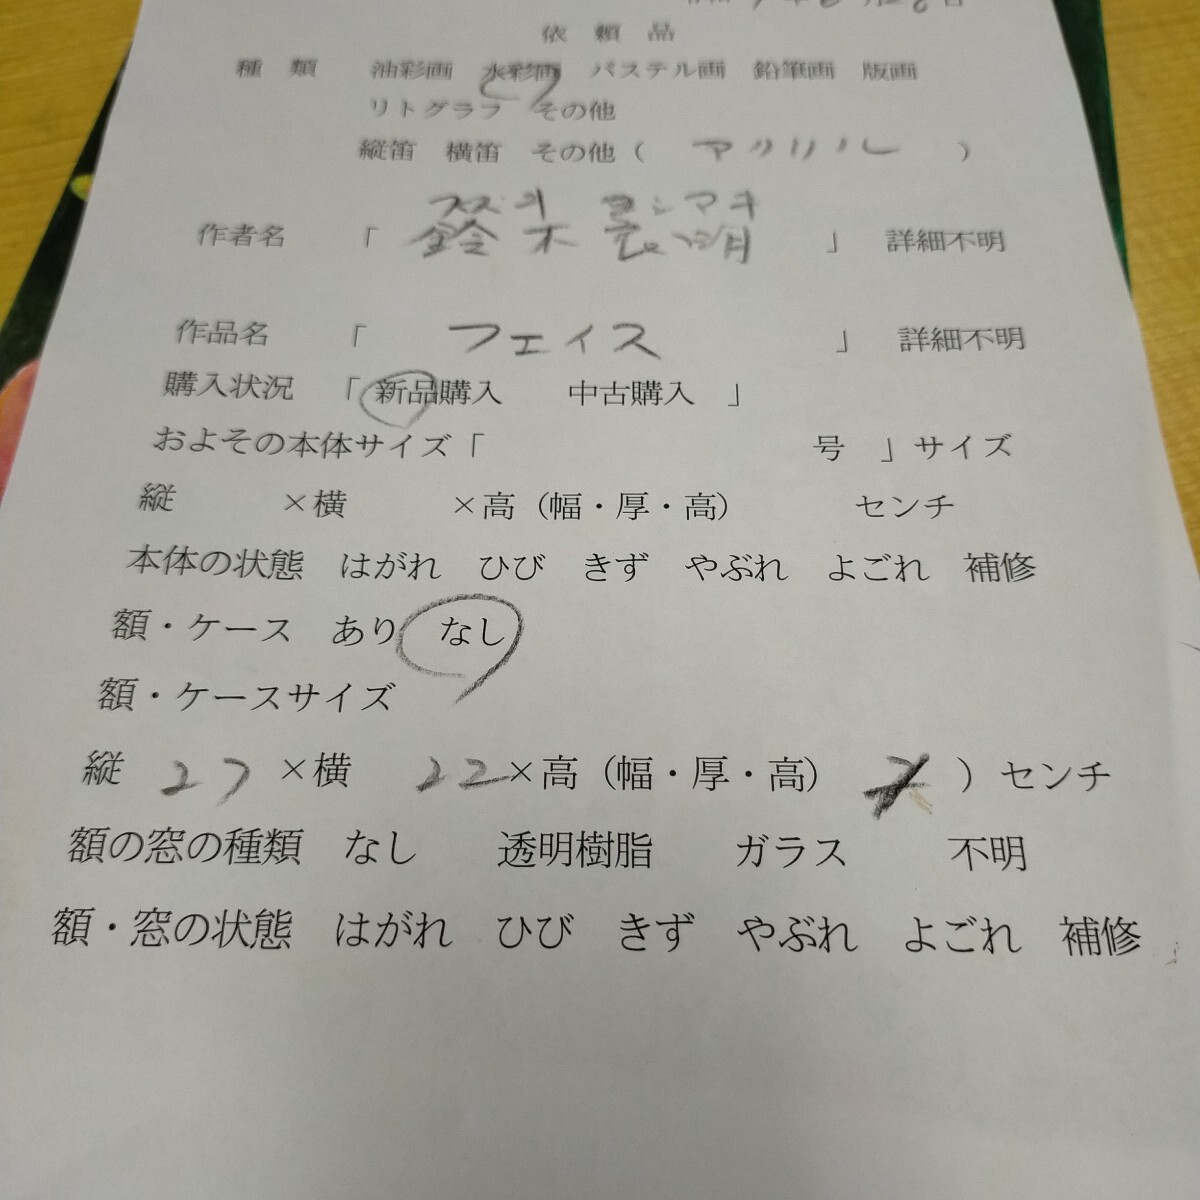 依頼品
種類 油彩画 水彩画 パステル画 鉛筆画 版画
リトグラフ その他
縦笛 横笛 その他( アクリル )
スズキ ヨシマキ
作者名 「 鈴木 」 詳細不明
作品名 「 フェイス 」 詳細不明
購入状況 「 新品購入 中古購入 」
およその本体サイズ「 号 」サイズ
縦 ×横 ×高(幅・厚・高) センチ
本体の状態 はがれ ひび きず やぶれ よごれ 補修
額・ケース あり なし
額・ケースサイズ
縦 27 ×横 22 ×高(幅・厚・高) )センチ
額の窓の種類 なし 透明樹脂 ガラス 不明
額・窓の状態 はがれ ひび きず やぶれ よごれ 補修